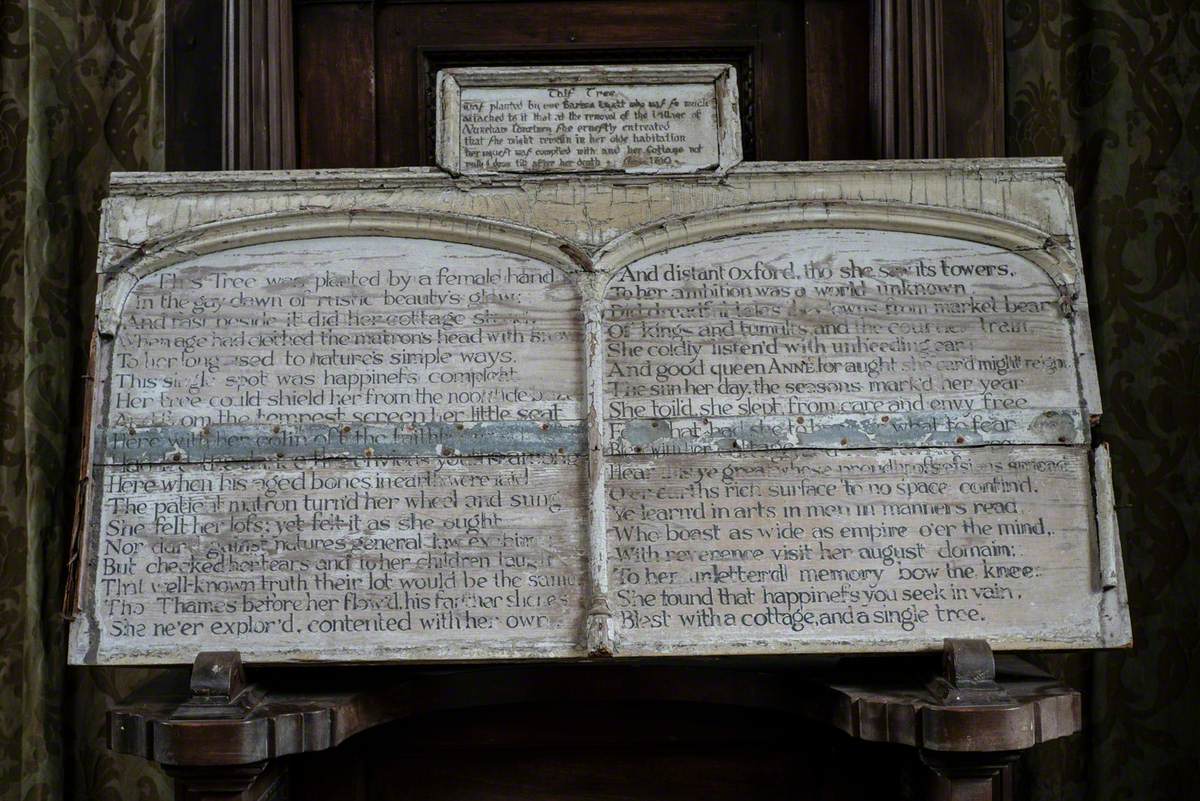 This Tree
was planted by one Barbra Wyatt who was so much
attached to it that at the removal of the Village of
Nuneham Courtney she ernestly entreated
that she might remain in her olde habitation
her request was complied with and her Cottage not
pulled down till after her death 
This Tree was planted by a female hand
In the gay dawn of rustic beauty's glow;
And fast beside it did her cottage
When age had clothed the matron's head with
To her long used to nature's simple ways.
This single spot was happiness compleat
Her tree could shield her from the noontide
And from the tempest screen her little seat
Here with her colin oft the faithful
Here when his aged bones in earth were laid
The patient matron turn'd her wheel and sung
She felt her loss; yet felt it as she ought
Nor dare against natures general law
But checked her tears and to her children
That well-known truth their lot would be the same
Tho Thames before her flow'd, his farther shores
She ne'er explor'd, contented with her own.
And distant Oxford, tho she saw its towers,
To her ambition was a world unknown
Did dreadful tales from market bear
Of kings and tumults and the courtier train.
She coldly listen'd with unheeding ear
And good queen ANNE for aught she car'd might reign
The sun her day, the seasons mark'd her year
She toil'd, she slept, from care and envy free
For what had she to what to fear
Hear this ye great whose proud
O'er earths rich surface to no space confind.
Ye learn'd in arts in men in manners read,
Who boast as wide as empire o'er the mind,
With reverence visit her august domain;
To her unletter'd memory bow the knee:
She found that happiness you seek in vain,
Blest with a cottage, and a single tree.